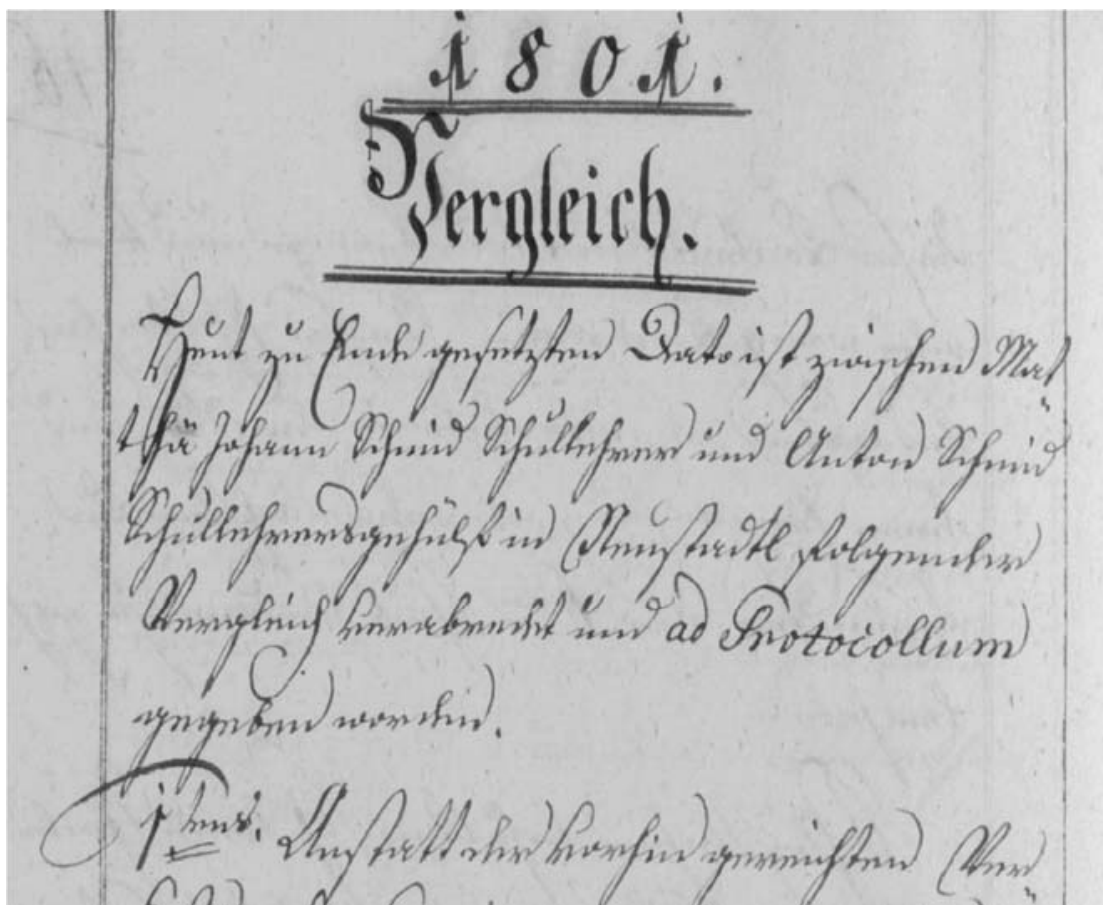 1801.
Vergleich.
Heut zu Ende gesetzten Dato ist zwischen Mat=
thä Johann Schmid Schullehrer und Anton Schmid
Schullehrersgehülf in Neustadtl folgender
Vergleich verabredet und ad Protocollum
gegeben worden.
1tens. Anstatt der vorhin gereichten Ver=